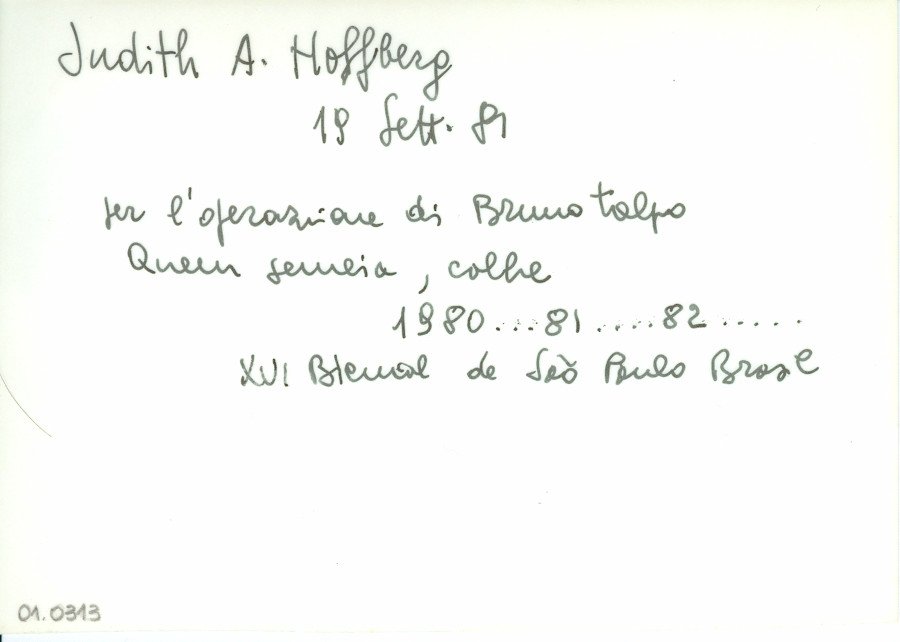 Judith A. Hoffberg
19 Sett. 81
per l'operazione di Bruno Talpo
Quem semeia, colhe
1980...81....82.....
XVI Bienal de São Paulo Brasil
01.0313